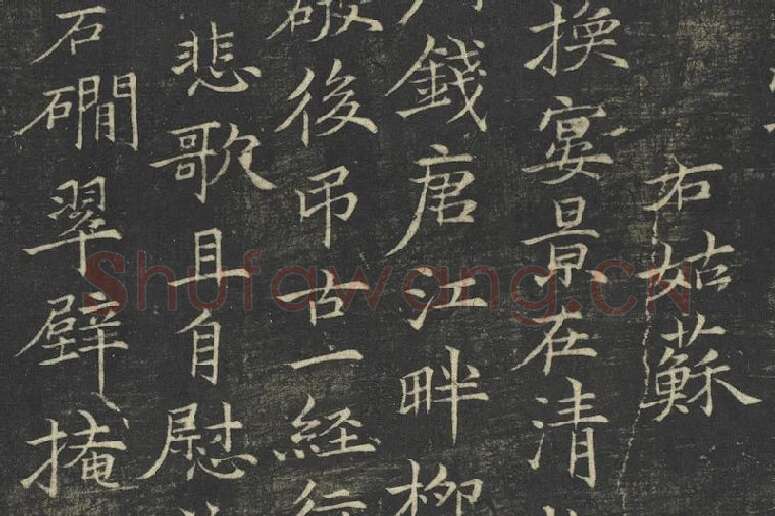 右姑蘇
換宴景在清
錢唐江畔柳
破後吊古一経行
悲歌且自慰
石磵翠壁掩
Shufawang.CN